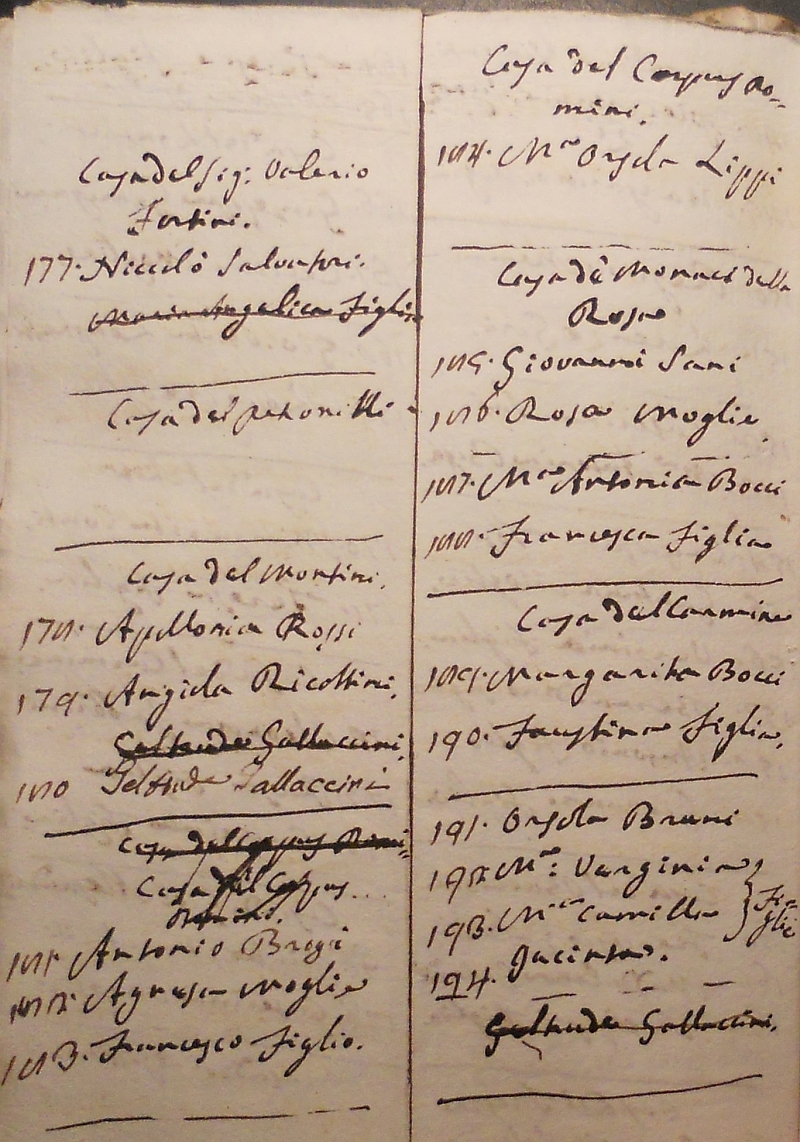 Casa del Sig: Valerio
Fortini.
177. Niccolò Salvatori.
Maria Angelica Figlia
Casa del
Casa del Montini.
178. Apollonia Rossi
179. Angiola Ricottini.
Geltrude Gallaccini.
180 Geltrude Gallaccini
Casa del Corpus Domini
Casa del Corpus
Domini.
181 Antonio Brogi
182 Agnesa Moglie
183. Francesco Figlio.
Casa del Corpus Do-
mini.
184. M.ª Orsola Lippi
Casa de Monaci della
Rosa
185. Giovanni Sani
186. Rosa Moglie
187. M.ª Antonia Bocci
188. Francesca Figlia
Casa del Carmine
189. Margarita Bocci
190. Faustina Figlia.
191. Orsola Bruni
192 M.ª: Verginia
193. M.ª Camilla } Fi-
glie
194. Jacinta.
Geltrude Gallaccini.